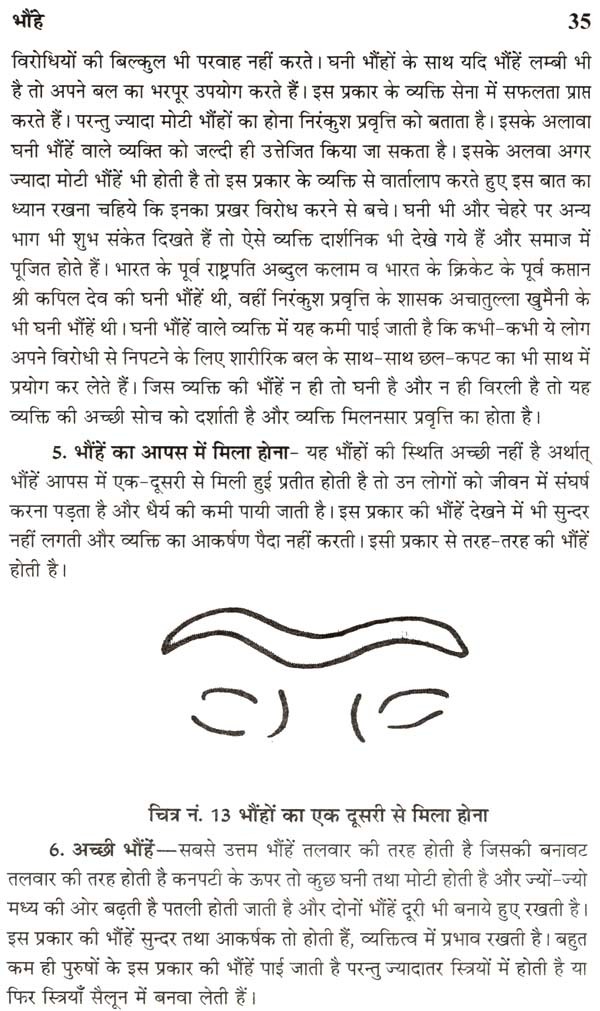 भौंहे 35
विरोधियों की बिल्कुल भी परवाह नहीं करते। घनी भौंहों के साथ यदि भौंहें लम्बी भी
है तो अपने बल का भरपूर उपयोग करते हैं। इस प्रकार के व्यक्ति सेना में सफलता प्राप्त
करते हैं। परन्तु ज्यादा मोटी भौंहों का होना निरंकुश प्रवृत्ति को बताता है। इसके अलावा
घनी भौंहें वाले व्यक्ति को जल्दी ही उत्तेजित किया जा सकता है। इसके अलवा अगर
ज्यादा मोटी भौंहें भी होती है तो इस प्रकार के व्यक्ति से वार्तालाप करते हुए इस बात का
ध्यान रखना चहिये कि इनका प्रखर विरोध करने से बचे। घनी भी और चेहरे पर अन्य
भाग भी शुभ संकेत दिखते हैं तो ऐसे व्यक्ति दार्शनिक भी देखे गये हैं और समाज में
पूजित होते हैं। भारत के पूर्व राष्ट्रपति अब्दुल कलाम व भारत के क्रिकेट के पूर्व कप्तान
श्री कपिल देव की घनी भौंहें थी, वहीं निरंकुश प्रवृत्ति के शासक अचातुल्ला खुमैनी के
भी घनी भौंहें थी। घनी भौंहें वाले व्यक्ति में यह कमी पाई जाती है कि कभी-कभी ये लोग
अपने विरोधी से निपटने के लिए शारीरिक बल के साथ-साथ छल-कपट का भी साथ में
प्रयोग कर लेते हैं। जिस व्यक्ति की भौंहें न ही तो घनी है और न ही विरली है तो यह
व्यक्ति की अच्छी सोच को दर्शाती है और व्यक्ति मिलनसार प्रवृत्ति का होता है।
5. भौंहें का आपस में मिला होना- यह भौंहों की स्थिति अच्छी नहीं है अर्थात्
भौंहें आपस में एक-दूसरी से मिली हुई प्रतीत होती है तो उन लोगों को जीवन में संघर्ष
करना पड़ता है और धैर्य की कमी पायी जाती है। इस प्रकार की भौंहें देखने में भी सुन्दर
नहीं लगती और व्यक्ति का आकर्षण पैदा नहीं करती। इसी प्रकार से तरह-तरह की भौंहें
होती है।
चित्र नं. 13 भौंहों का एक दूसरी से मिला होना
6. अच्छी भौंहें—सबसे उत्तम भौंहें तलवार की तरह होती है जिसकी बनावट
तलवार की तरह होती है कनपटी के ऊपर तो कुछ घनी तथा मोटी होती है और ज्यों-ज्यो
मध्य की ओर बढ़ती है पतली होती जाती है और दोनों भौंहें दूरी भी बनाये हुए रखती है।
इस प्रकार की भौंहें सुन्दर तथा आकर्षक तो होती हैं, व्यक्तित्व में प्रभाव रखती है। बहुत
कम ही पुरुषों के इस प्रकार की भौंहें पाई जाती है परन्तु ज्यादातर स्त्रियों में होती है या
फिर स्त्रियाँ सैलून में बनवा लेती हैं।